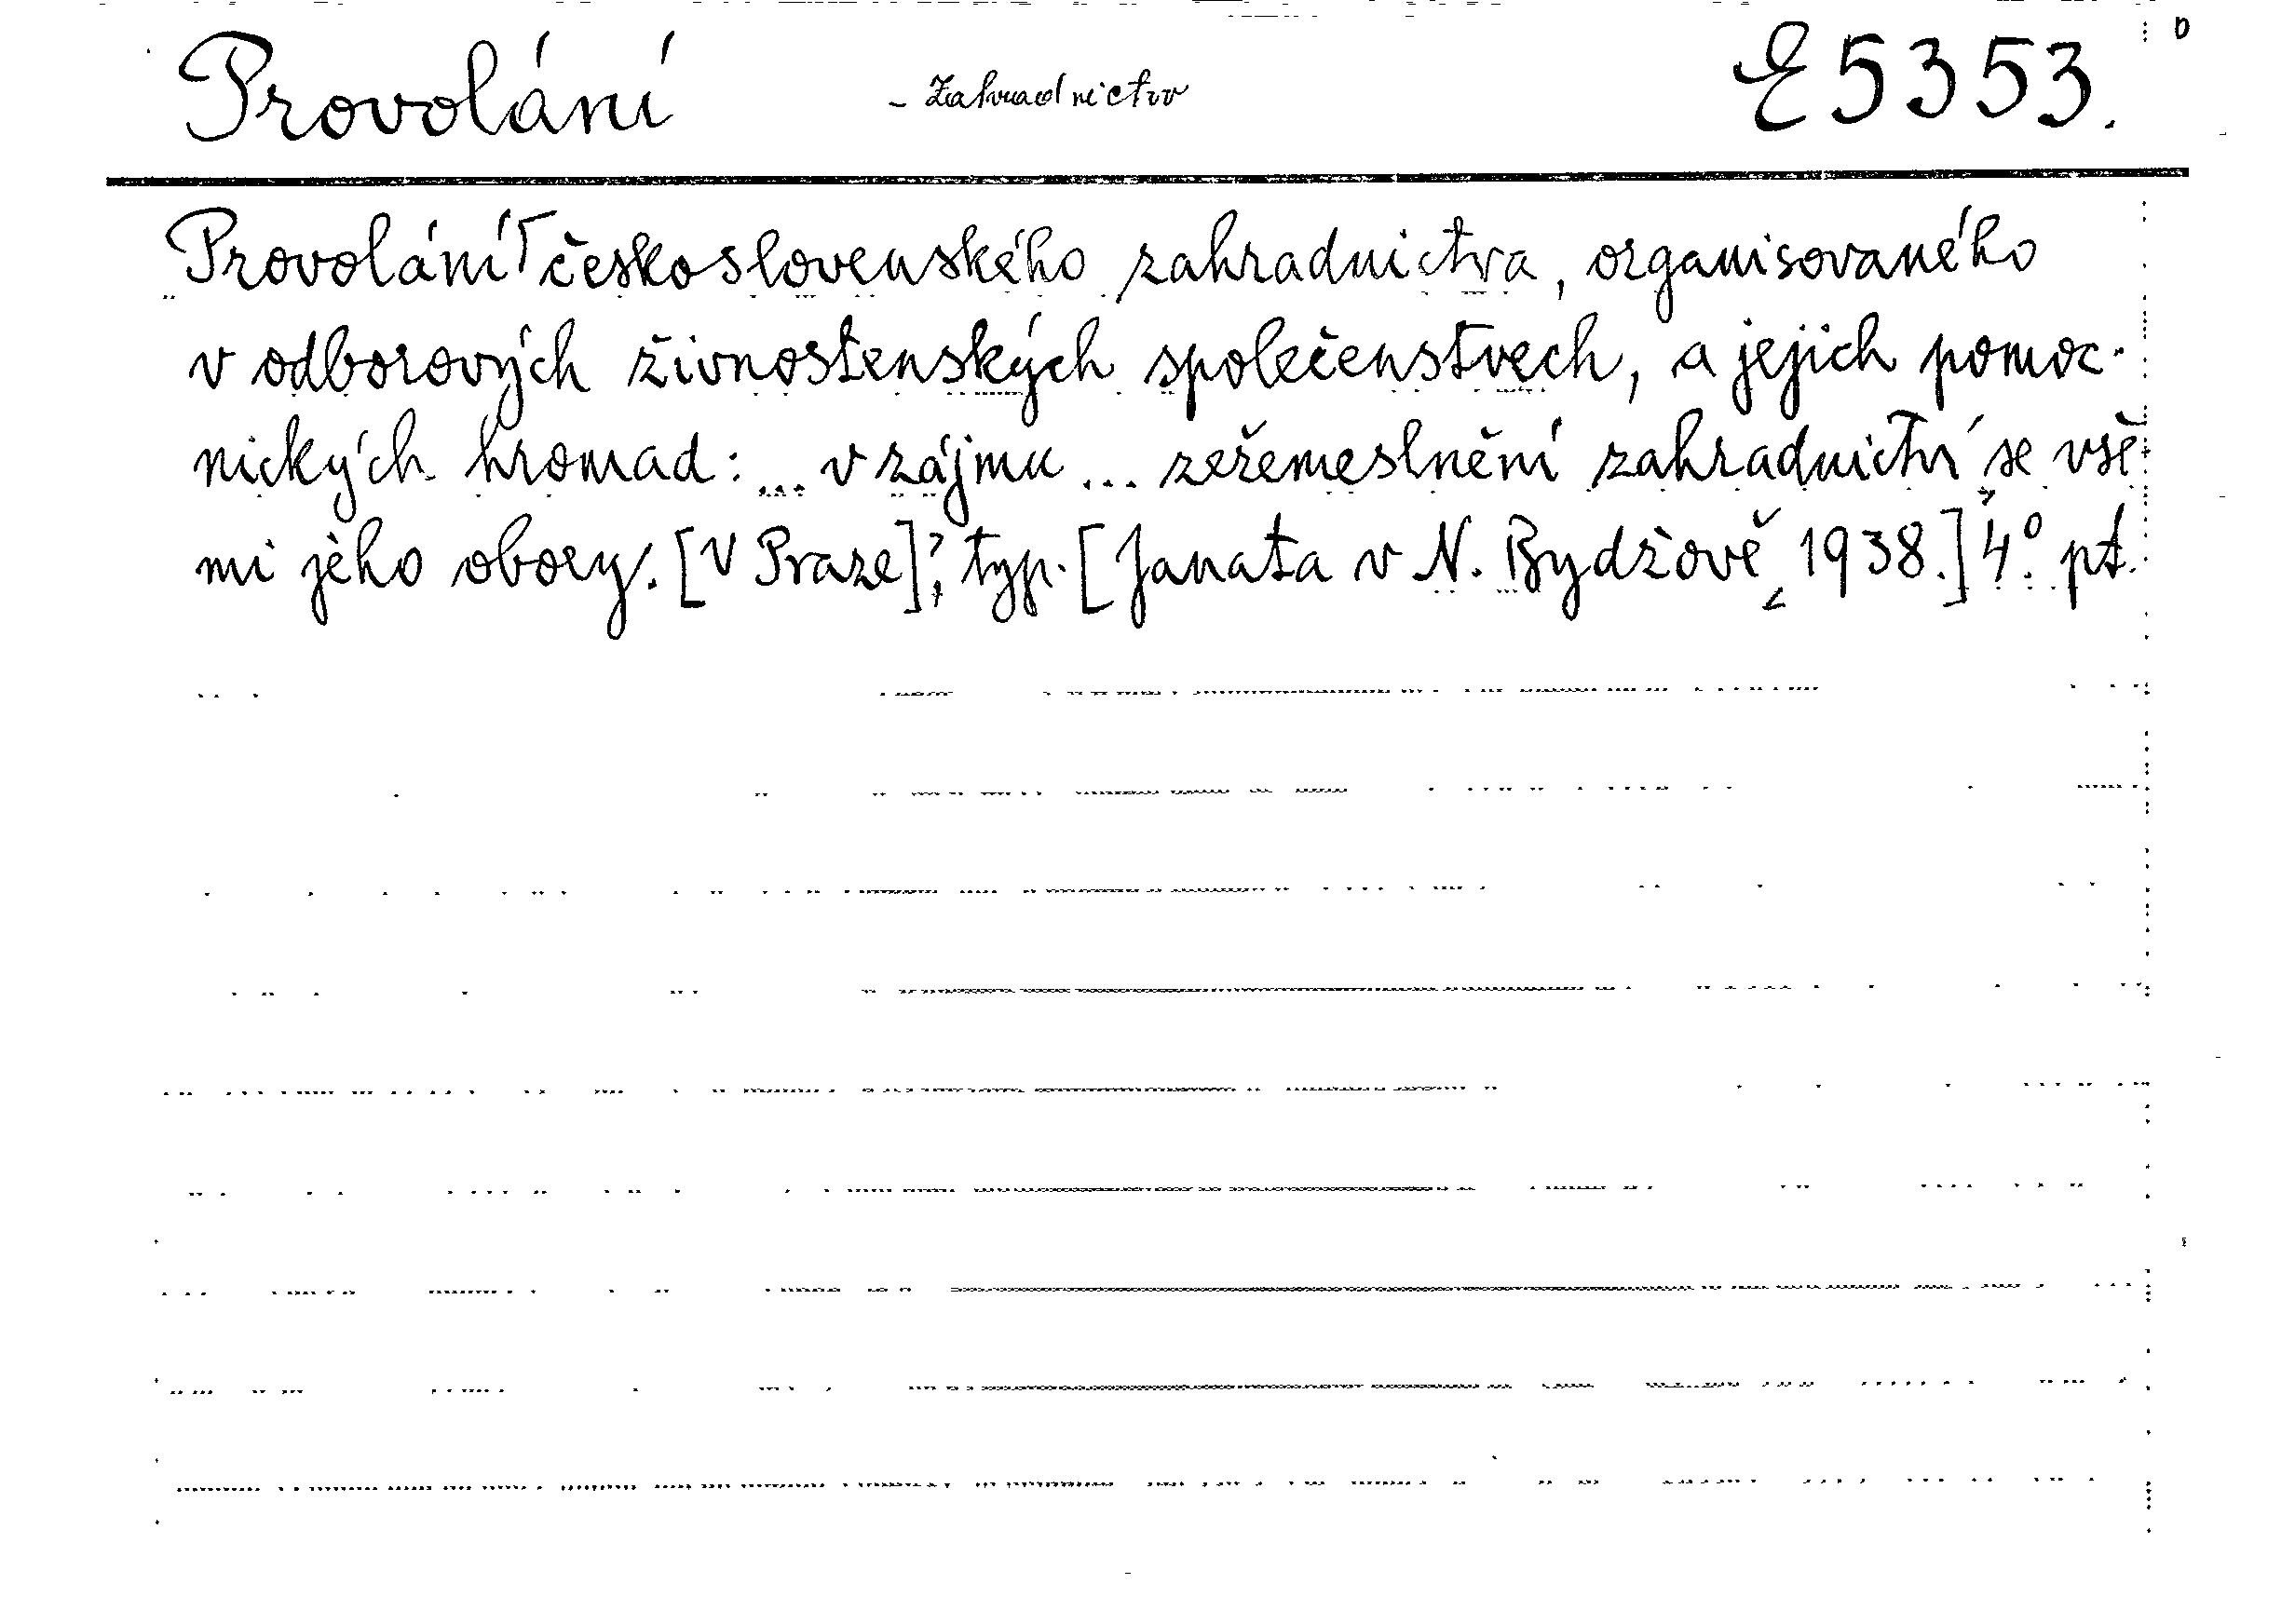 Provolání - Zahradnictvo E 5353.
Provolání československého zahradnictva, organisovaného
v odborových živnostenských společenstvech, a jejich pomoc-
nických hromad: ... v zájmu ... zeřemeslnění zahradnictví se vše-
mi jeho obory. [V Praze]?, typ. [Janata v N. Bydžově, 1938.] 4° pt.